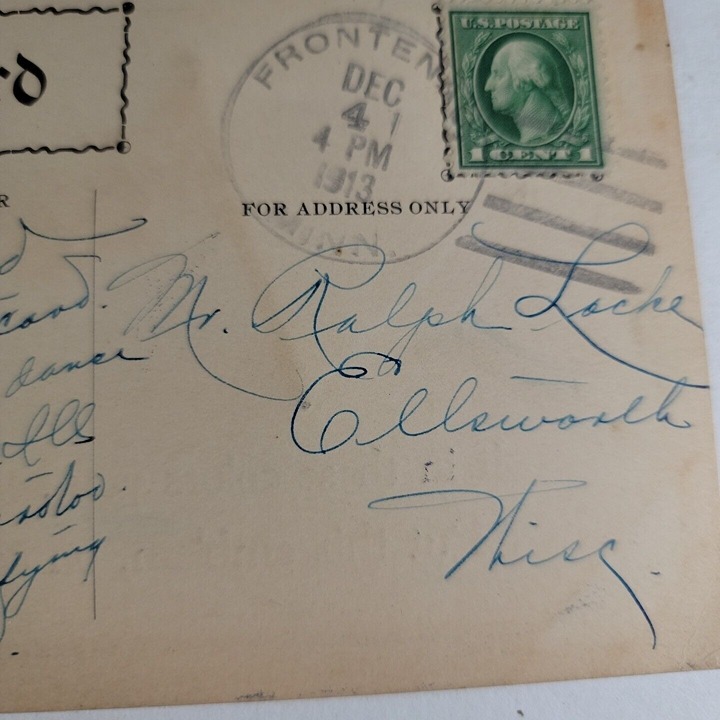 rd
U.S. POSTAGE
1 CENT 1
FRONTEN
DEC
4
4 PM
1913
MINN.
R
FOR ADDRESS ONLY
Mr. Ralph Locke
Ellsworth
Wisc.
card.
dance